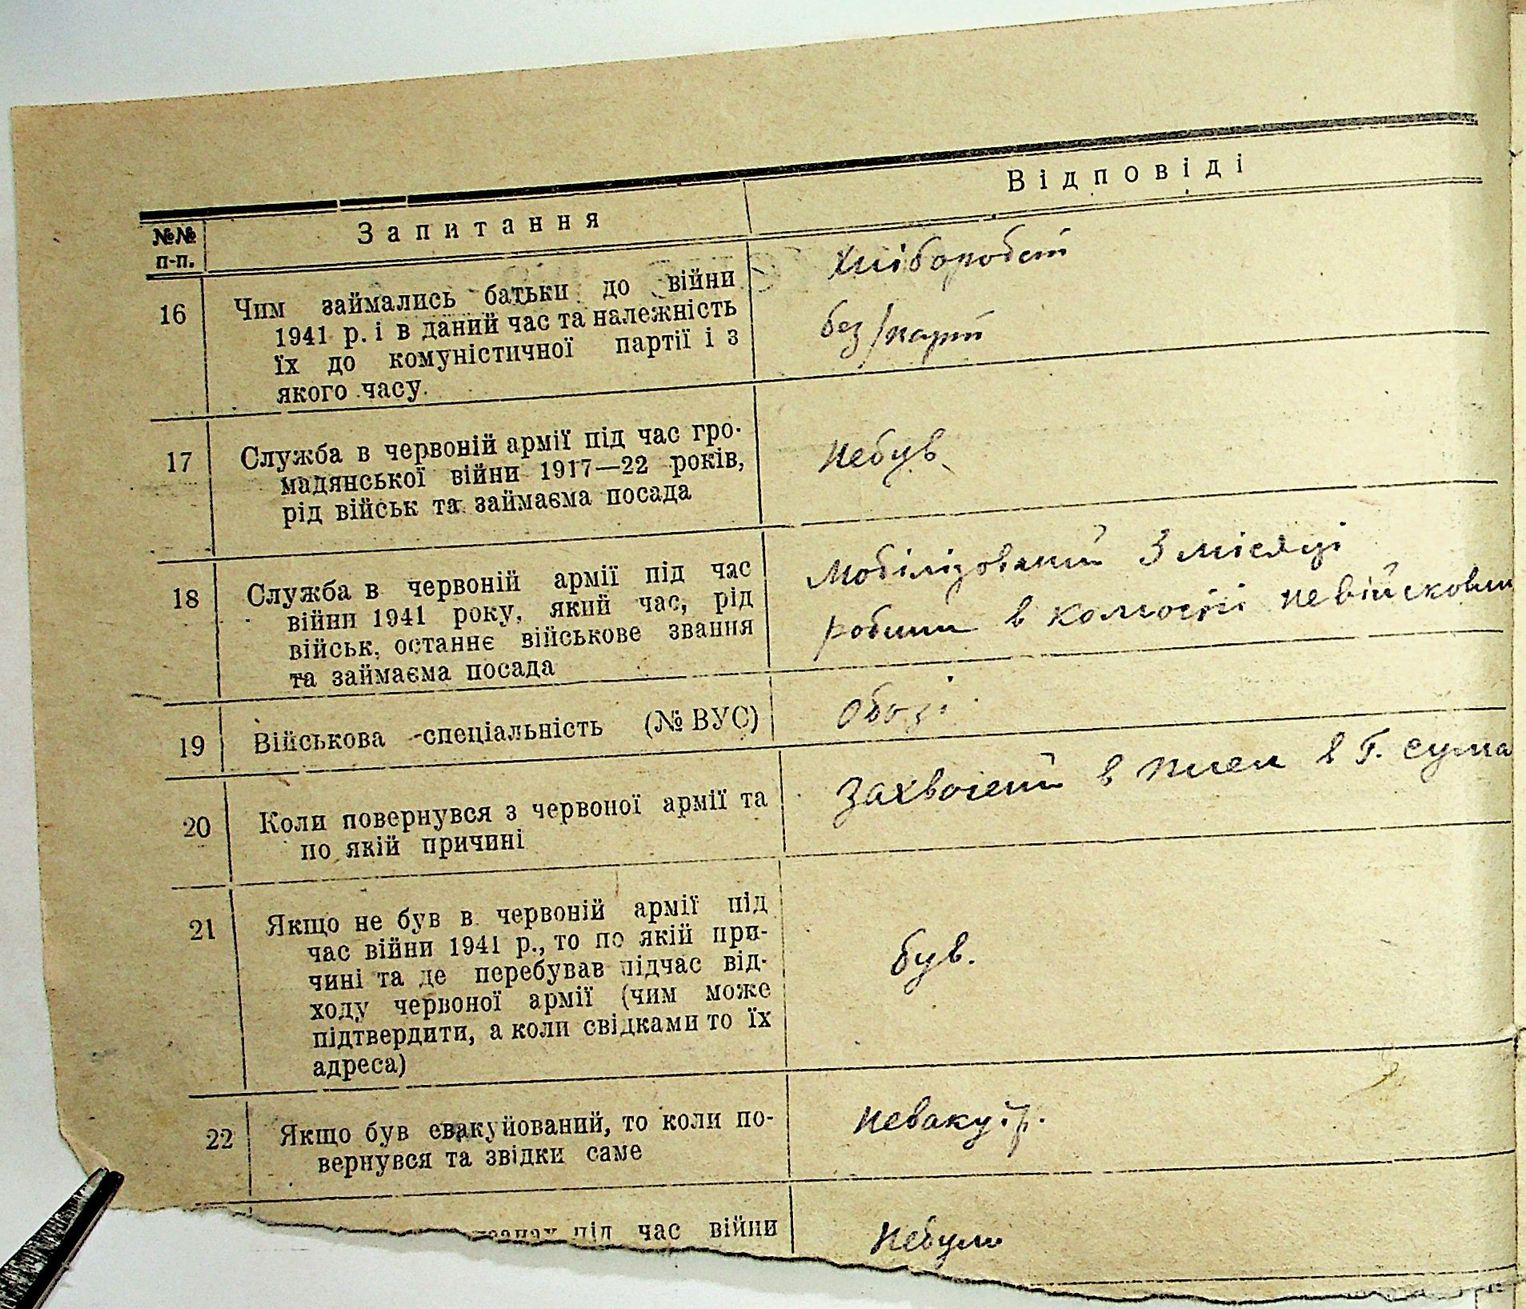 №№ п-п.
Запитання
Відповіді
16
Чим займались батьки до війни
1941 р. і в даний час та належність
їх до комуністичної партії і з
якого часу.
Хліборобст
без/парт
17
Служба в червоній армії під час гро-
мадянської війни 1917—22 років,
рід військ та займаєма посада
Небув
18
Служба в червоній армії під час
війни 1941 року, який час, рід
військ, останнє військове звання
та займаєма посада
Мобілізований 3 місяці
в невійсковим
19
Військова спеціальність (№ ВУС)
Обозі
20
Коли повернувся з червоної армії та
по якій причині
Захвочений в плен в Г. Сума
21
Якщо не був в червоній армії під
час війни 1941 р., то по якій при-
чині та де перебував підчас від-
ходу червоної армії (чим може
підтвердити, а коли свідками то їх
адреса)
був.
22
Якщо був евакуйований, то коли по-
вернувся та звідки саме
Невакуір.
під час війни
Небули